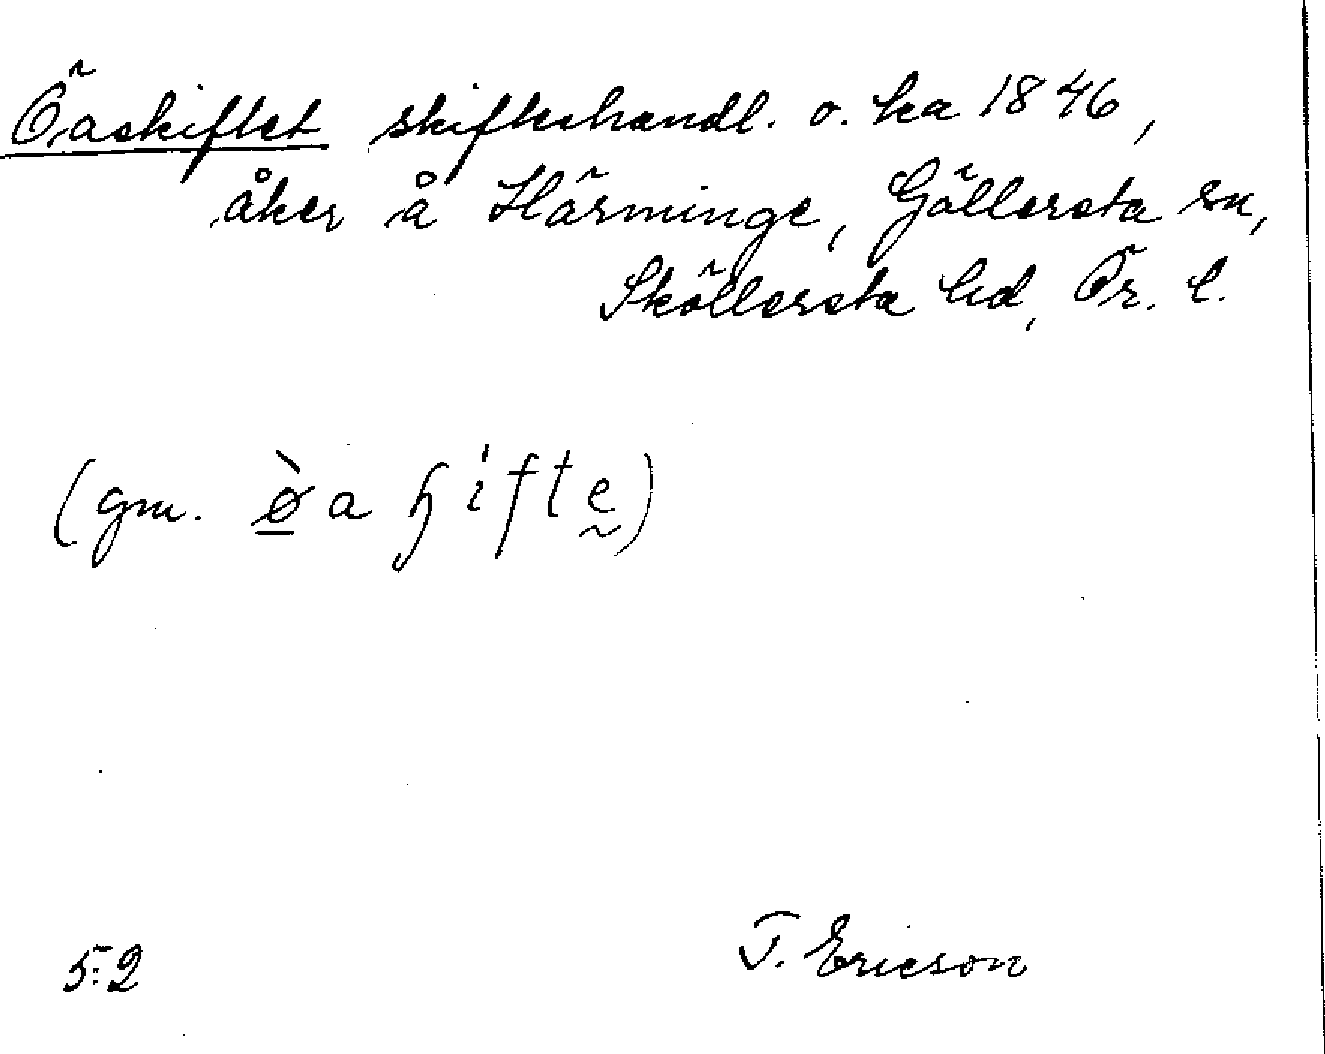 Öaskiftet skifteshandl. o. ka 1846,
åker å Härminge, Gällersta sn,
Sköllersta hd, Ör. l.
(gm. ø̠̀a ɧiftḛ)
5:2 T. Ericson